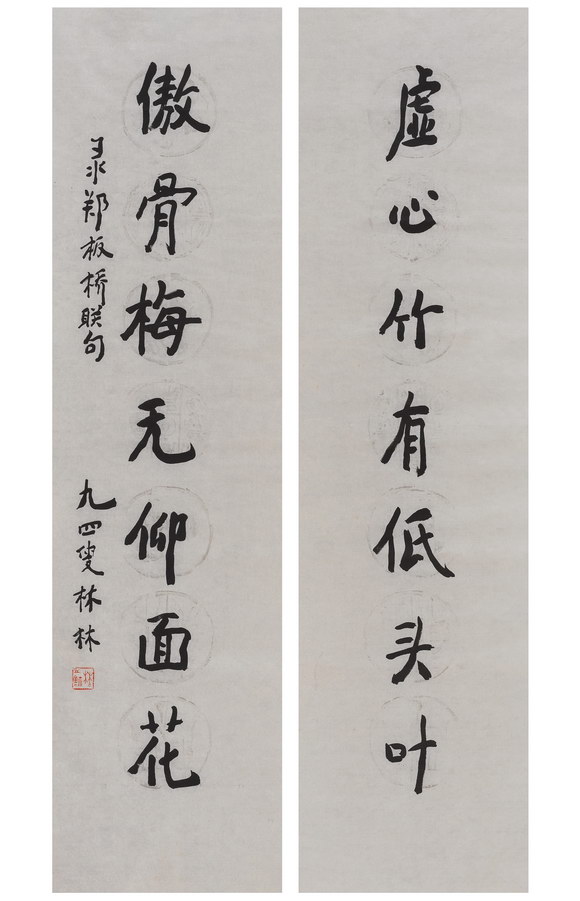 虚心竹有低头叶
傲骨梅无仰面花
录郑板桥联句
九四叟林林